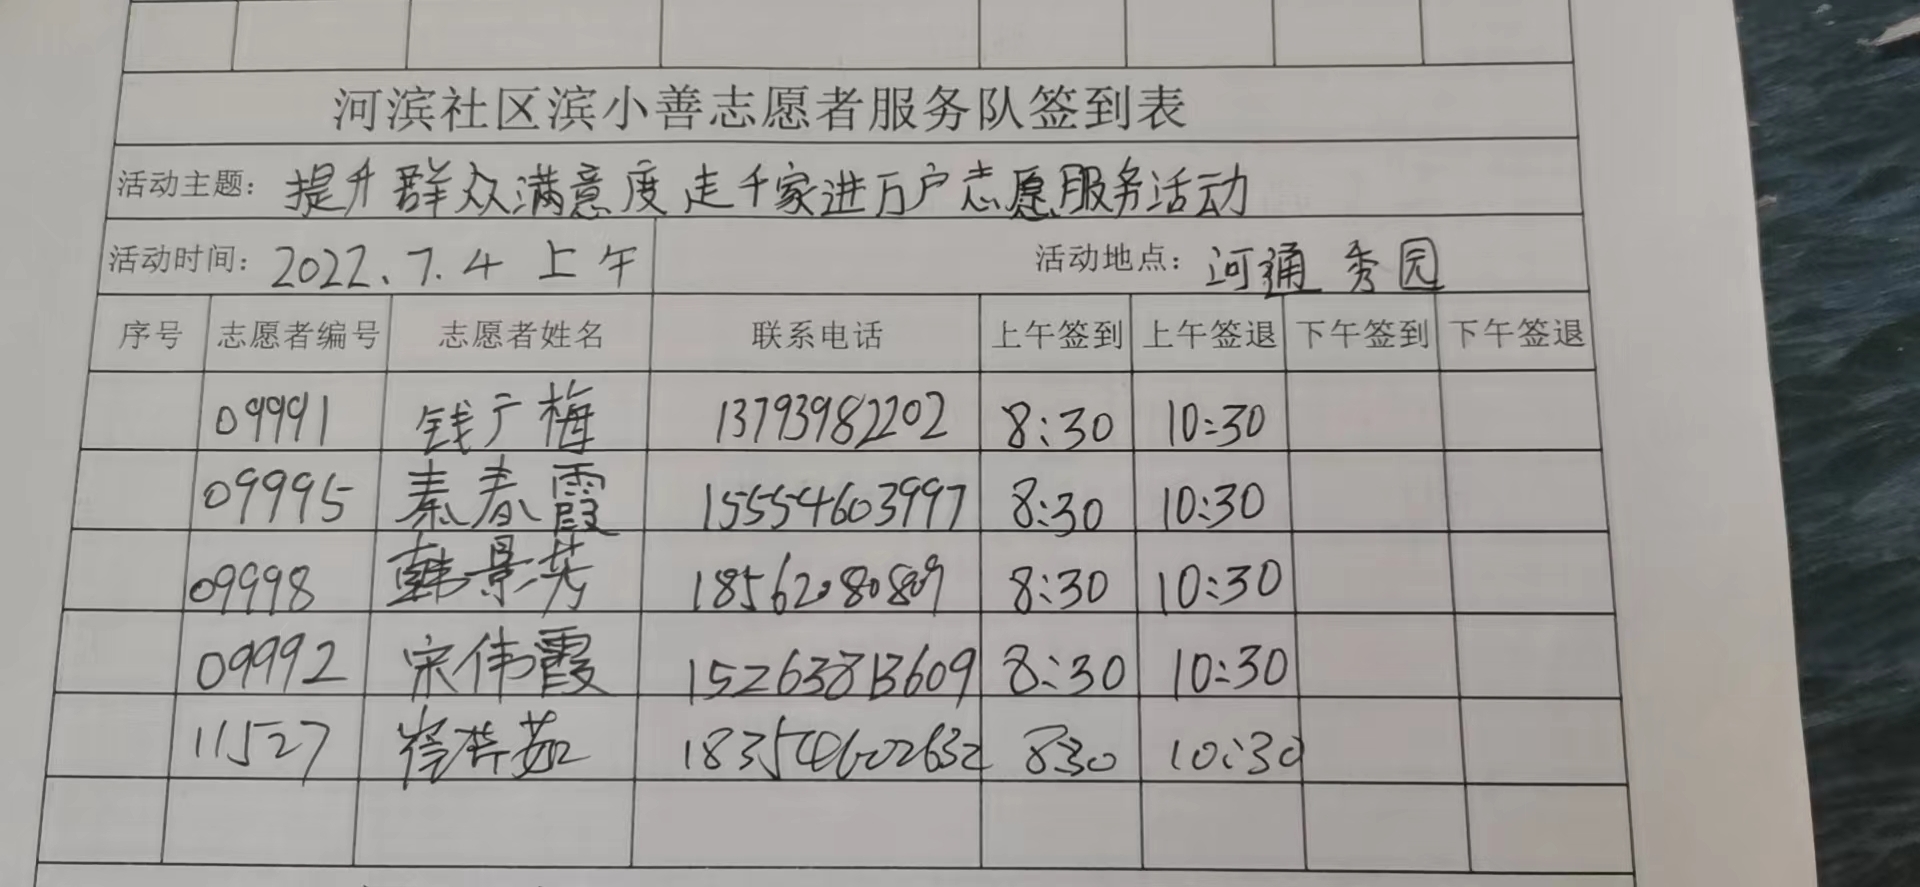 河滨社区滨小善志愿者服务队签到表
活动主题: 提升群众满意度走千家进万户志愿服务活动
活动时间: 2022.7.4 上午 活动地点: 河通秀园
序号 志愿者编号 志愿者姓名 联系电话 上午签到 上午签退 下午签到 下午签退
09991 钱广梅 13793982202 8:30 10:30
09995 秦春霞 15554603997 8:30 10:30
09998 韩景芳 18562080809 8:30 10:30
09992 宋伟霞 15263813609 8:30 10:30
11527 18354602632 8:30 10:30